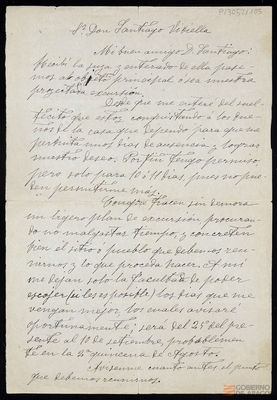 Sr Don Santiago Vidiella
Mi buen amigo D. Santiago:
Recibí la suya y enterado de ella pase-
mos al objeto principal o sea nuestra
proyectada excursión.
Desde que me entere del suel-
tecito que estoy conquistando a los due-
ños de la casa que dependo para que me
permita unos dias de ausencia y lograr
nuestro deseo. Por fin tengo permiso,
pero solo para 10 o 11 dias pues no pue-
den permitirme más.
tracen sin demora
un ligero plan de excursión procuran-
do no malgastar tiempo, y concreten
bien el sitio o pueblo que debemos reu-
nirnos y lo que proceda hacer. A mi
me dejan solo la facultad de poder
escojer (si les es posible) los dias que me
vengan mejor, los cuales avisaré
oportunamente; será del 25 del pre-
sente al 10 de setiembre, probablemen-
te en la 2ª quincena de Agosto.
Avisenme cuanto antes el punto
que debemos reunirnos.
GOBIERNO
DE ARAGON